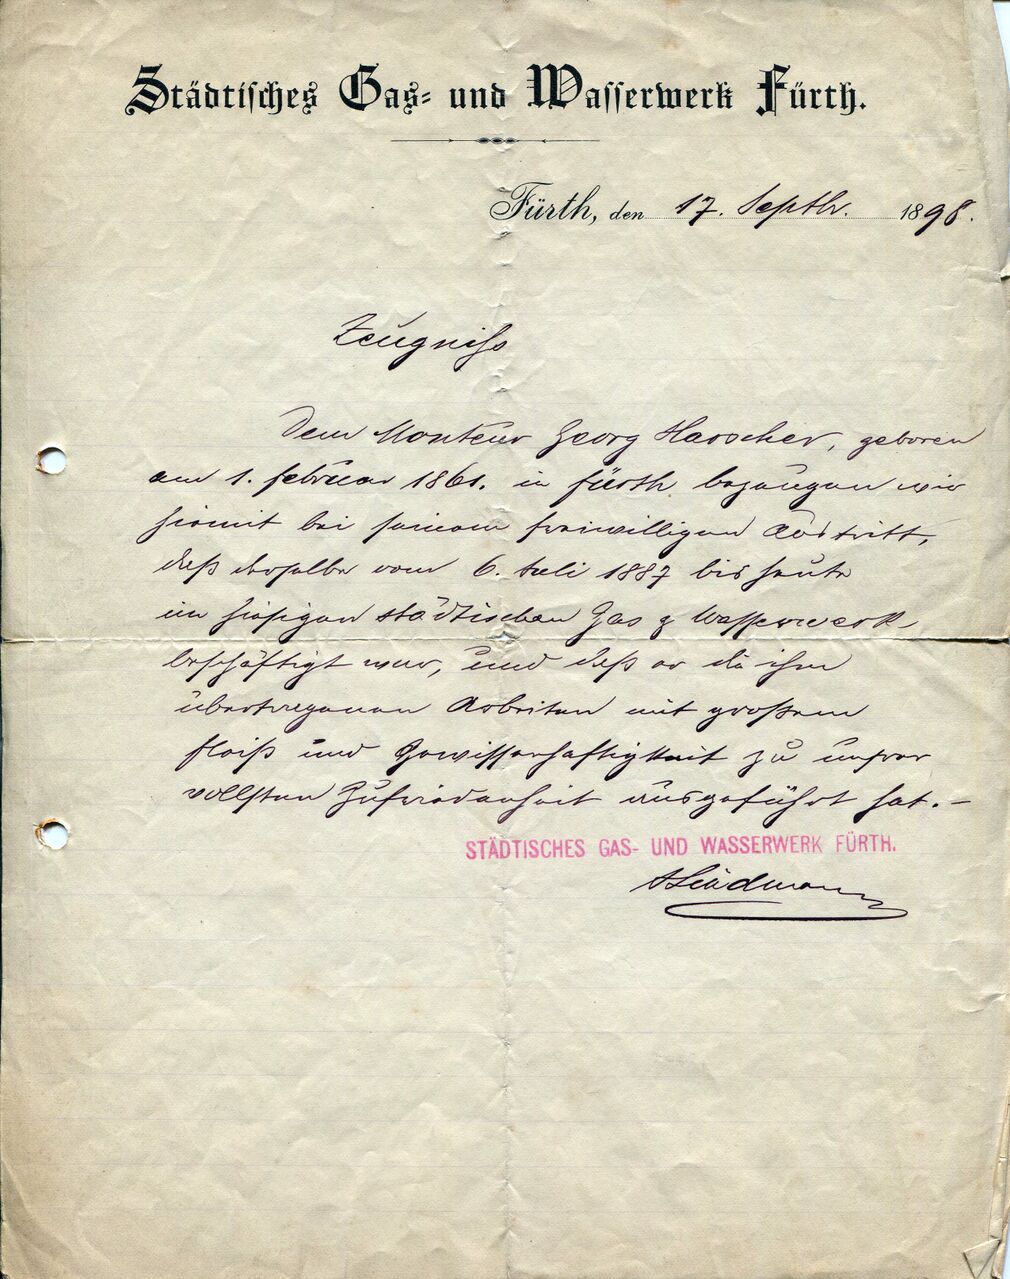 Städtisches Gas- und Wasserwerk Fürth.
Fürth, den 17. Septbr. 1898.
Zeugniss
Dem Monteur Georg Haoscher, geboren
am 1. Februar 1861. in Fürth bezeugen wir
hiemit bei seinem freiwilligen Austritt,
daß derselbe vom 6. Juli 1887 bis heute
im hiesigen städtischen Gas & Wasserwerk
beschäftigt war, und daß er die ihm
übertragenen Arbeiten mit großem
Fleiß und Gewissenhaftigkeit zu unsrer
vollsten Zufriedenheit ausgeführt hat.-
STÄDTISCHES GAS- UND WASSERWERK FÜRTH.